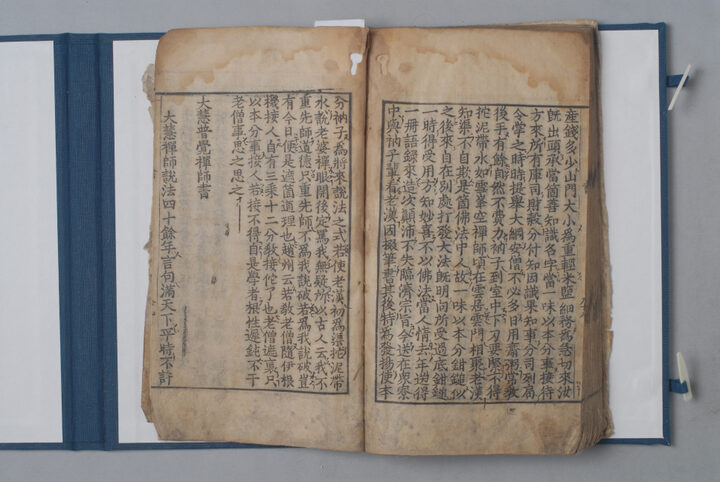 產錢多少山門大小為重輕米鹽細務為急切來汝
旣出頭承當箇善知識名字當一味以本分事接待
方來所有庫司財穀分付知因識果知事分司列局
令掌之時時提擧大綱安僧不必多日用齋粥常敎
後手有餘自然不費力衲子到室中下刃要緊不得
拕泥帶水如雪峯空禪師頃在雲居雲門相聚老漢
知渠不自欺是箇佛法中人故一味以本分鉗鎚似
之後來自在別處打發大法旣明向所受過底鉗鎚
一時得受用方知妙喜不以佛法當人情去年送得
一冊語錄來造次顚沛不失臨濟宗旨今送在衆寮
中與衲子輩看老漢因掇筆書其後特爲發揚使本
分衲子爲將來說法之式若使老漢初爲渠拕泥帶
水說老婆禪眼開後定罵我無疑所以古人云我不
重先師道德只重先師不爲我說破若爲我說破豈
有今日便是遮箇道理也趙州云若敎老僧隨伊根
機接人自有三乘十二分敎接佗了也老僧遮裏只
以本分事接人若接不得自是學者根性遲鈍不干
老僧事思之思之
大慧普覺禪師書
大慧禪師說法四十餘年言句滿天下平時不許